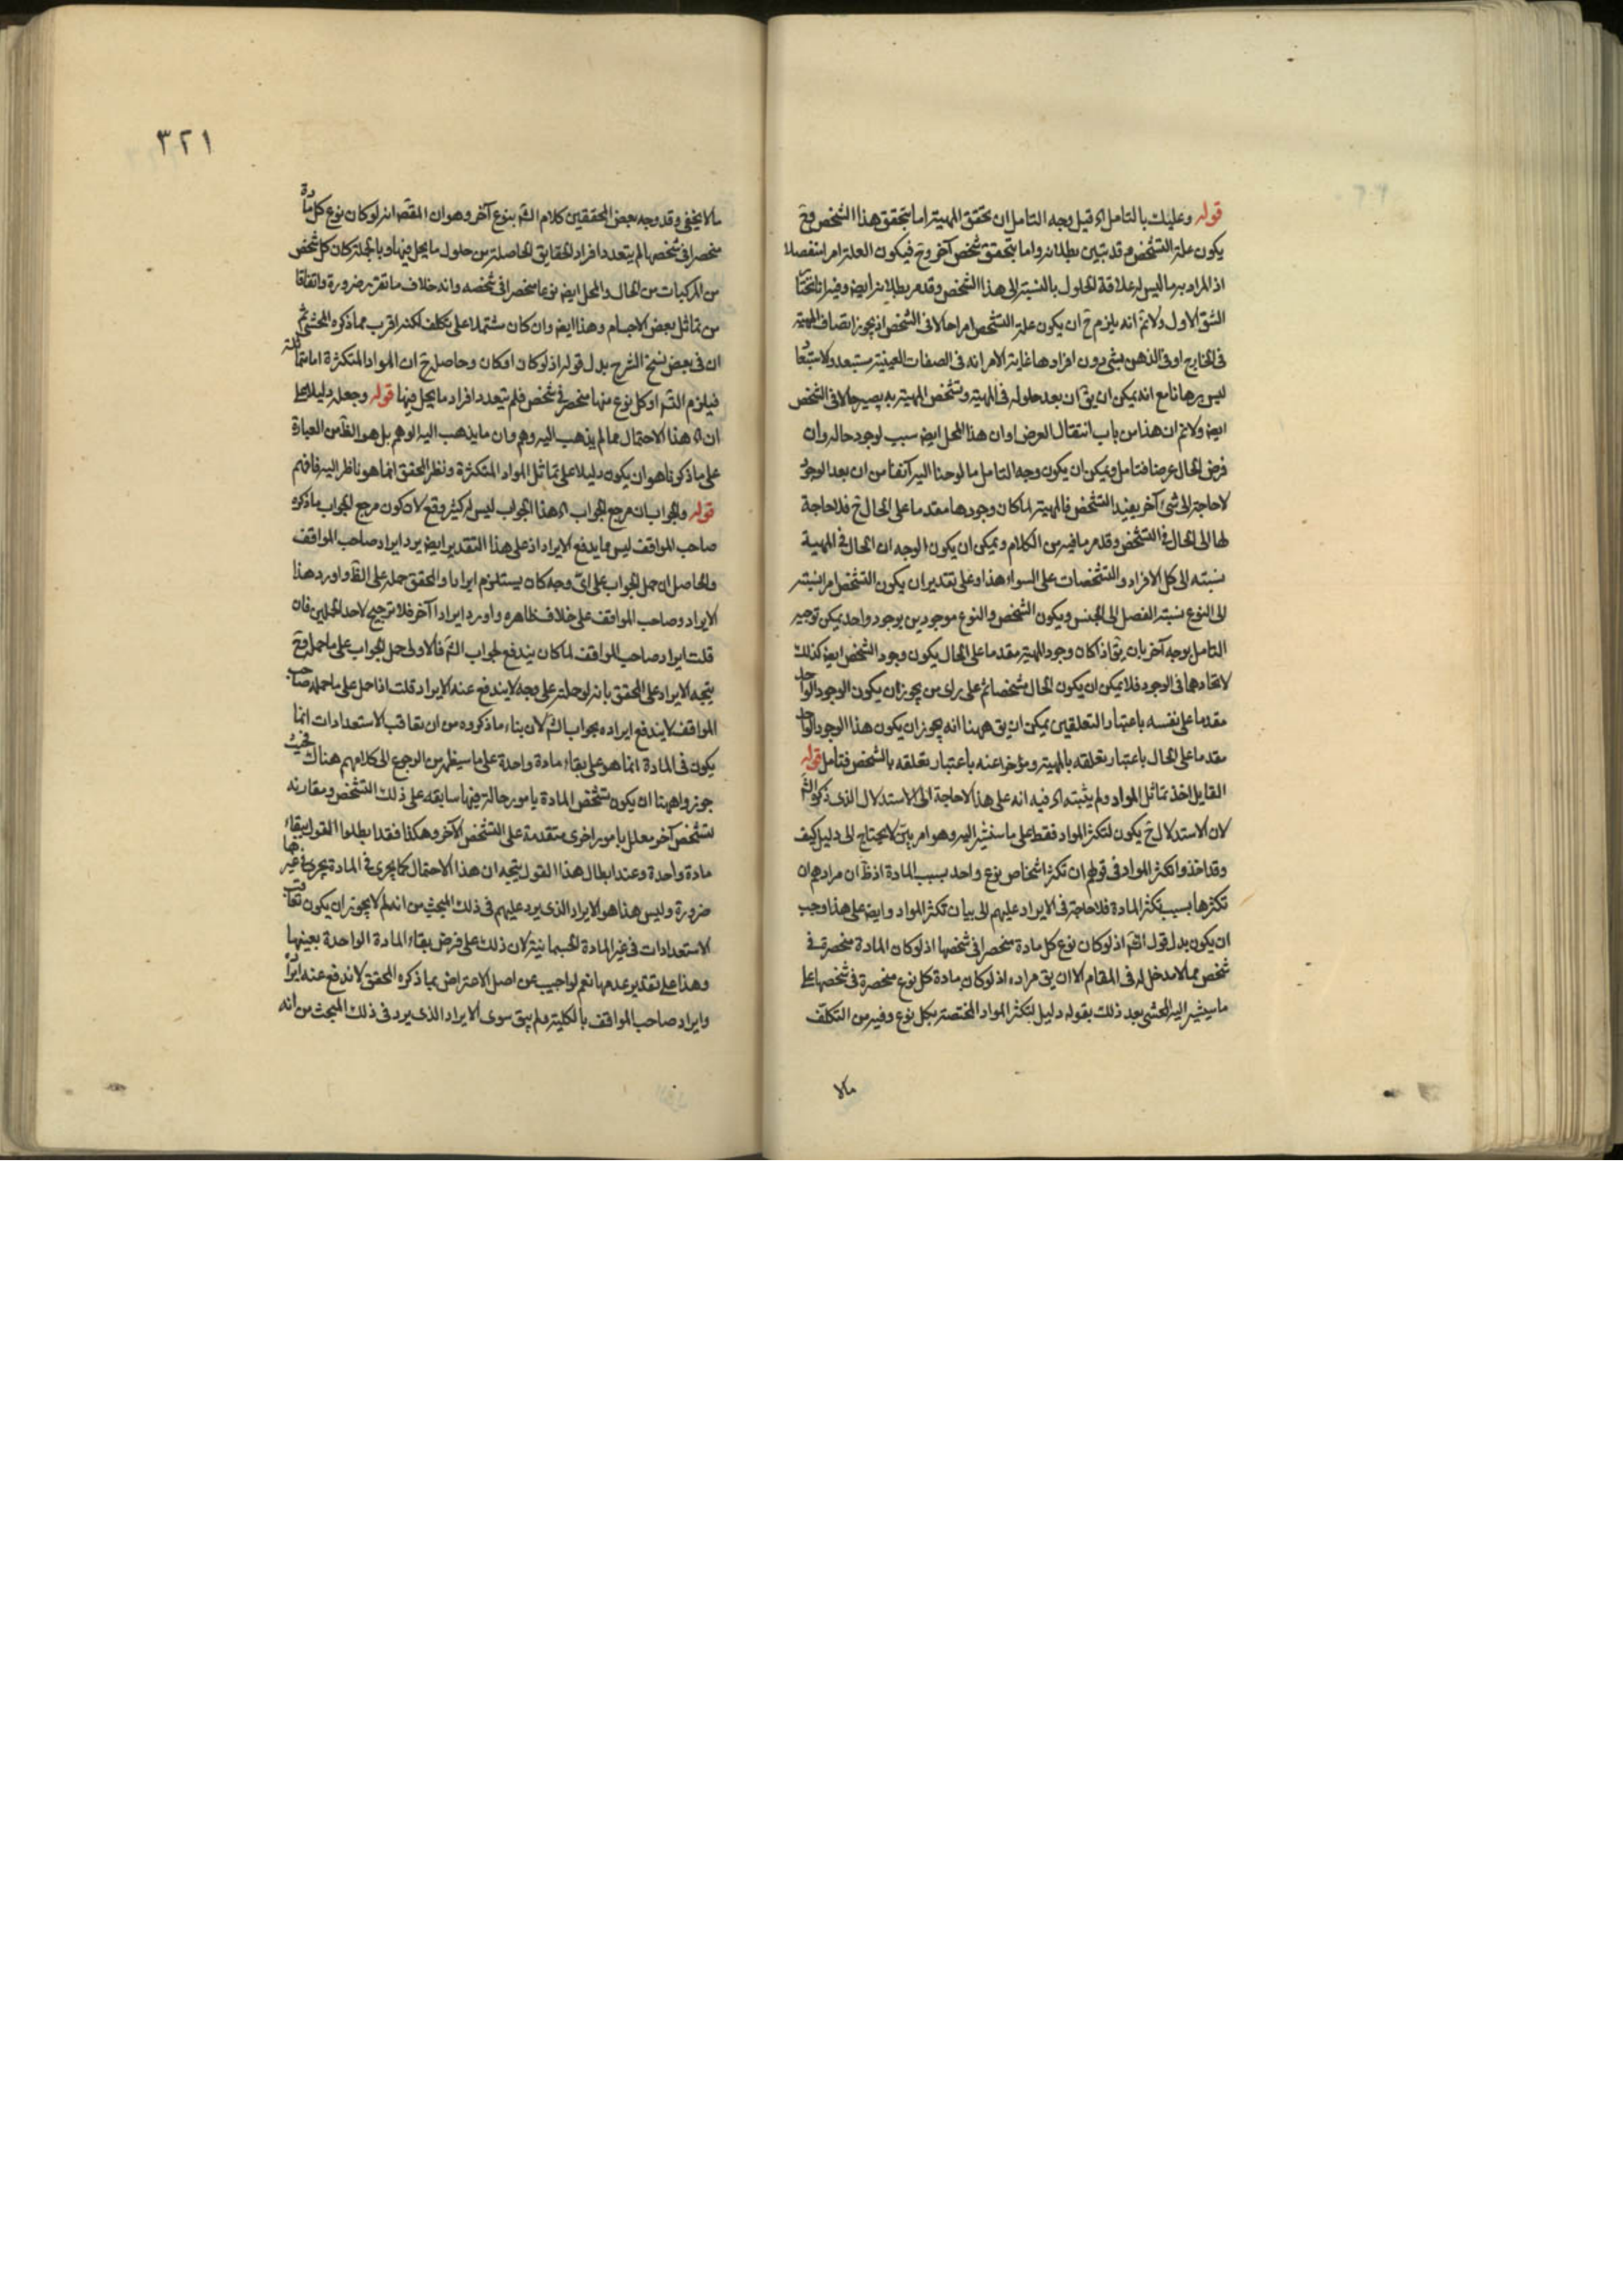 قوله وعليك بالتامل اه قيل وجه التامل ان تحقق المهية اما بتحقق هذا الشخص فح
يكون علة التشخص وقد تبين بطلانه واما بتحقق شخص آخر وح فيكون العلة امر
اذ المراد به ما ليس له علاقة الحلول بالنسبة الى هذا الشخص وقد مر بطلانه ايض وفيه انا نختا
الشق الاول ولا ثم انه يلزم ح ان يكون علة التشخص امرا حالا فى الشخص اذ يجوز اتصاف المهية
فى الخارج او فى الذهن بشئ دون افرادها غاية الامر انه فى الصفات العينية مستبعد والاستبعا
ليس برهانا مع انه يمكن ان يق ان بعد حلوله فى المهية وتشخص المهية به يصير حالا فى الشخص
ايض ولا ثم ان هذا من باب انتقال العرض اوان هذا المحل ايض سبب لوجود حاله وان
فرض الحال عرضا فتامل ويمكن ان يكون وجه التامل ما لوحنا اليه آنفا من ان بعد الوجود
لا حاجة الى شئ آخر يفيد التشخص فالمهية لما كان وجودها مقدما على الحال ح فلا حاجة
لها الى الحال فى التشخص وقد مر ما فيه من الكلام ويمكن ان يكون الوجه ان الحال فى المهية
نسبته الى كل الافراد والتشخصات على السواء هذا وعلى تقدير ان يكون التشخص نسبته
الى النوع نسبة الفصل الى الجنس ويكون الشخص والنوع موجودين بوجود واحد يمكن توجيه
التامل بوجه آخر بان يق اذا كان وجود المهية مقدما على الحال يكون وجود الشخص ايض كذلك
لاتحادهما فى الوجود فلا يمكن ان يكون الحال مشخصا ثم على راى من يجوز ان يكون الوجود الواحد
مقدما على نفسه باعتبار التعلقين يمكن ان يق ههنا انه يجوز ان يكون هذا الوجود الواحد
مقدما على الحال باعتبار تعلقه بالمهية ومؤخرا عنه باعتبار تعلقه بالشخص فتامل قوله
القايل اخذ تماثل المواد ولم يثبته اه فيه انه على هذا لا حاجة الى الاستدلال الذى ذكره الش
لان الاستدلال ح يكون لتكثر المواد فقط على ما سنشير اليه وهو امر بين لا يحتاج الى دليل كيف
وقد اخذوا تكثر المواد فى قولهم ان تكثر اشخاص نوع واحد بسبب المادة اذ ظ ان مرادهم ان
تكثرها بسبب تكثر المادة فلا حاجة فى الايراد عليهم الى بيان تكثر المواد وايض على هذا وجب
ان يكون بدل قول الش اذ لو كان نوع كل مادة منحصرا فى شخصها اذ لو كان المادة منحصرة فى
شخص مما لا مدخل له فى المقام الا ان يق مراده اذ لو كان مادة كل نوع منحصرة فى شخصها على
ما سيشير اليه المحشى بعد ذلك بقوله دليل لتكثر المواد المختصة بكل نوع وفيه من التكلف
مالا
٣٢١
مالا يخفى وقد وجه بعض المحققين كلام الش بنوع آخر وهو ان المقص انه لو كان نوع كل مادة
منحصرا فى شخصها لم يتعدد افراد الحقايق الحاصلة من حلول ما يحل فيها وبالجملة كان كل شخص
من المركبات من الحال والمحل ايض نوعا منحصرا فى شخصه وانه خلاف ما تقرر ضرورة واتفاقا
من تماثل بعض الاجسام وهذا ايض وان كان مشتملا على تكلف لكنه اقرب مما ذكره المحشى ثم
ان فى بعض نسخ الشرح بدل قوله اذ لو كان او كان وحاصله ح ان المواد المتكثرة اما متماثلة
فيلزم التس او كل نوع منها منحصر فى شخص فلم يتعدد افراد ما يحل فيها قوله وجعله دليلا على
ان اه هذا الاحتمال مما لم يذهب اليه وهم وان ما يذهب اليه الوهم بل هو الظ من العبارة
على ما ذكرنا هو ان يكون دليلا على تماثل المواد المتكثرة ونظر المحقق انما هو ناظر اليه فافهم
قوله والجواب ان مرجع الجواب اه هذا الجواب ليس له كثير وقع لان كون مرجع الجواب ما ذكره
صاحب المواقف ليس مما يدفع الايراد اذ على هذا التقدير ايض يرد ايراد صاحب المواقف
والحاصل ان حمل الجواب على اى وجه كان يستلزم ايرادا والمحقق حمله على الظ واورد هذا
الايراد وصاحب المواقف على خلاف ظاهره واورد ايرادا آخر فلا ترجيح لاحد الحملين فان
قلت ايراد صاحب المواقف لما كان يندفع بجواب الش فالاولى حمل الجواب على ما حمله فح
يتجه الايراد على المحقق بانه لو حملته على وجه لا يندفع عنه الايراد قلت اذا حمل على ما حمله صاحب
المواقف لا يندفع ايراده بجواب الش لان بناء ما ذكروه من ان تعاقب الاستعدادات انما
يكون فى المادة انما هو على بقاء مادة واحدة على ما سيظهر من الرجوع الى كلامهم هناك فحيث
جوزوا ههنا ان يكون تشخص المادة بامور حالة فيها سابقه على ذلك التشخص ومقارنه
لتشخص آخر معلل بامور اخرى متقدمة على التشخص الآخر وهكذا فقد ابطلوا القول ببقاء
مادة واحدة وعند ابطال هذا القول يتجه ان هذا الاحتمال كما يجرى فى المادة يجرى فى غيرها
ضرورة وليس هذا هو الايراد الذى يرد عليهم فى ذلك المبحث من انه لم لا يجوز ان يكون تعاقب
الاستعدادات فى غير المادة الجسمانية لان ذلك على فرض بقاء المادة الواحدة بعينها
وهذا على تقدير عدمها نعم لو اجيب عن اصل الاعتراض بما ذكره المحقق لاندفع عنه ايراده
وايراد صاحب المواقف بالكلية ولم يبق سوى الايراد الذى يرد فى ذلك المبحث من انه